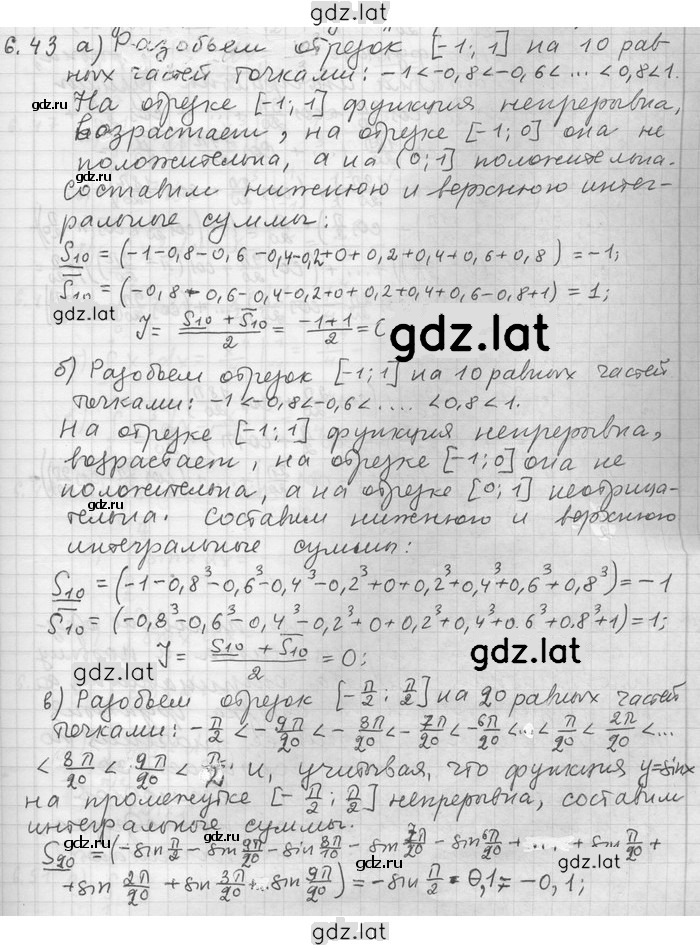 gdz.lat
6.43 а) Разобьем отрезок [-1; 1] на 10 рав-
ных частей точками: -1<-0,8<-0,6<...<0,8<1.
На отрезке [-1; 1] функция непрерывна,
gdz.lat
возрастает, на отрезке [-1; 0] она не
положительна, а на (0; 1] положительна.
gdz.lat
Составим нижнюю и верхнюю интег-
ральные суммы:
S10 = (-1-0,8-0,6-0,4-0,2+0+0,2+0,4+0,6+0,8) = -1;
S10 = (-0,8-0,6-0,4-0,2+0+0,2+0,4+0,6-0,8+1) = 1;
gdz.lat
J = (S10 + S10)/2 = (-1+1)/2 =
gdz.lat
б) Разобьем отрезок [-1; 1] на 10 равных частей
точками: -1<-0,8<-0,6<....<0,8<1.
gdz.lat
На отрезке [-1; 1] функция непрерывна,
возрастает, на отрезке [-1; 0] она не
положительна, а на отрезке [0; 1] неотрица-
gdz.lat
тельна. Составим нижнюю и верхнюю
интегральные суммы:
S10 = (-1-0,8³-0,6³-0,4³-0,2³+0+0,2³+0,4³+0,6³+0,8³) = -1
S10 = (-0,8³-0,6³-0,4³-0,2³+0+0,2³+0,4³+0.6³+0.8³+1) = 1;
gdz.lat
J = (S10 + S10)/2 = 0;
gdz.lat
в) Разобьем отрезок [-π/2; π/2] на 20 равных частей
точками: -π/2 < -9π/20 < -8π/20 < -7π/20 < -6π/20 <...< π/20 < 2π/20 <...
< 8π/20 < 9π/20 < π/2 и, учитывая, что функция y=sinx
на промежутке [-π/2; π/2] непрерывна, составим
интегральные суммы.
gdz.lat
S20 = (-sin π/2 - sin 9π/20 - sin 8π/10 - sin 7π/20 - sin 6π/20 + ... + sin π/20 +
gdz.lat
+ sin 2π/20 + sin 3π/20 +...sin 9π/20) = -sin π/2 · 0,1 = -0,1;
gdz.lat